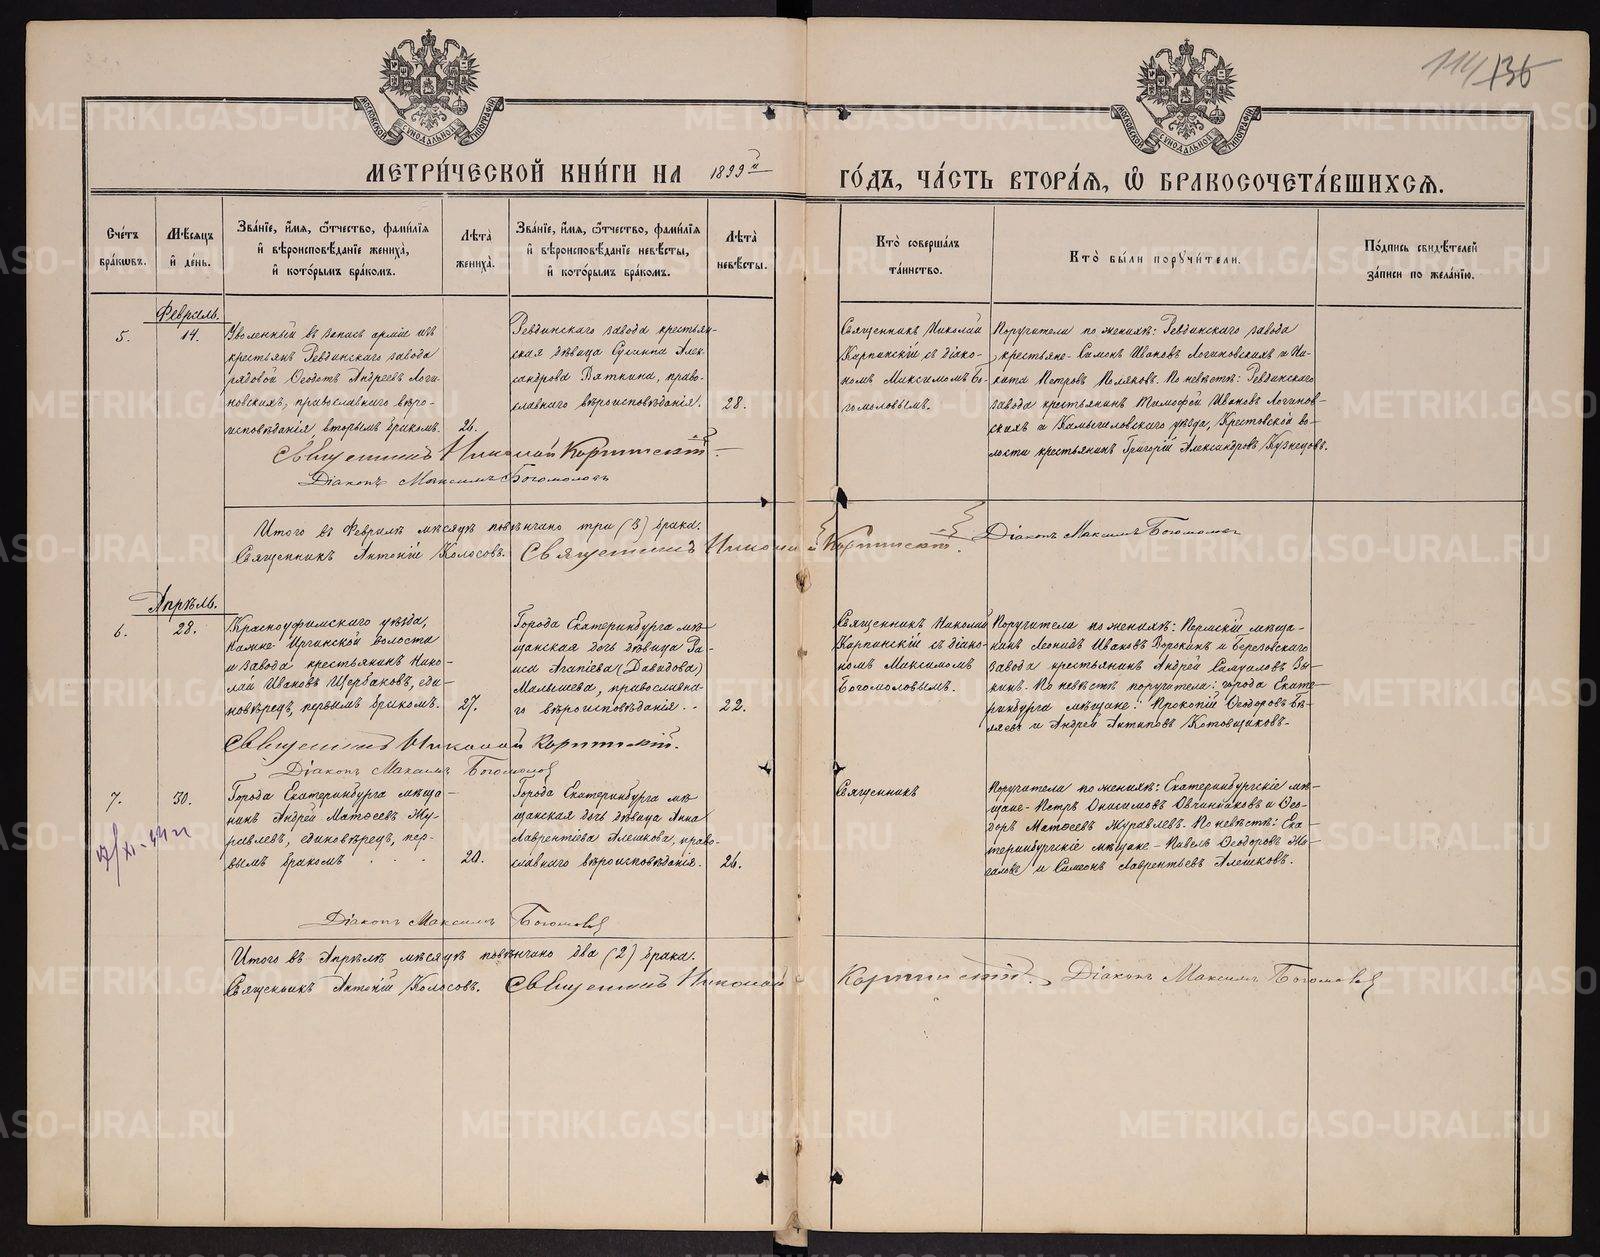 114 136
МОСКОВСКОЙ СѴНОДАЛЬНОЙ ТИПОГРАФІИ
МОСКОВСКОЙ СѴНОДАЛЬНОЙ ТИПОГРАФІИ
МЕТРИ́ЧЕСКОЙ КНИ́ГИ НА 1899й ГО́ДЪ, ЧА́СТЬ ВТОРА́Я, Ѽ БРАКОСОЧЕТА́ВШИХСЯ.
Сче́тъ
бра́кѡвъ.
Мѣ́сяцъ
и҆ де́нь.
Зва́нїе, и҆́мя, ѻ҆́тчество, фами́лїя
и҆ вѣроисповѣ́данїе жениха̀,
и҆ кото́рымъ бра́комъ.
Лѣ́та
жениха̀.
Зва́нїе, и҆́мя, ѻ҆́тчество, фами́лїя
и҆ вѣроисповѣ́данїе невѣ́сты,
и҆ кото́рымъ бра́комъ.
Лѣ́та
невѣ́сты.
Кто̀ соверша́лъ
та́инство.
Кто̀ бы́ли порꙋчи́тели.
По́дпись свидѣ́телей
за́писи по жела́нїю.
Февраль.
5.
14.
Уволенный въ запасъ арміи изъ
крестьянъ Ревдинскаго завода
рядовой Ѳеодотъ Андреевъ Логи-
новскихъ, православнаго вѣро-
исповѣданія вторымъ бракомъ.
26.
Ревдинскаго завода крестьян-
ская дѣвица Сусанна Алек-
сандрова Вяткина, право-
славнаго вѣроисповѣданія.
28.
Священникъ Николай
Карпинскій съ діако-
номъ Максимомъ Бо-
гомоловымъ.
Поручители по женихѣ: Ревдинскаго завода
крестьяне Симонъ Ивановъ Логиновскихъ и Ни-
кита Петровъ Поляковъ. По невѣстѣ: Ревдинскаго
завода крестьянинъ Тимофей Ивановъ Логинов-
скихъ и Камышловскаго уѣзда, Крестовской во-
лости крестьянинъ Григорій Александровъ Кузнецовъ.
Священникъ Николай Карпинскій
Діаконъ Максимъ Богомоловъ
Итого въ Февралѣ мѣсяцѣ повѣнчано три (3) брака.
Священникъ Антоній Колосовъ. Священникъ Николай Карпинскій. Діаконъ Максимъ Богомоловъ
Апрѣль.
6.
28.
Красноуфимскаго уѣзда,
Нижне-Иргинской волости
и завода крестьянинъ Нико-
лай Ивановъ Щербаковъ, еди-
новѣрецъ, первымъ бракомъ.
27.
Города Екатеринбурга мѣ-
щанская дочь дѣвица Ра-
иса Агапіева (Давидова)
Малышева, православна-
го вѣроисповѣданія.
22.
Священникъ Николай
Карпинскій съ діако-
номъ Максимомъ
Богомоловымъ.
Поручители по женихѣ: Пермскій мѣща-
нинъ Леонидъ Ивановъ Ворокинъ и Березовскаго
завода крестьянинъ Андрей Самуиловъ Зы-
кинъ. По невѣстѣ поручители: города Екате-
ринбурга мѣщане: Прокопій Ѳеодоровъ Бѣ-
ляевъ и Андрей Антиповъ Котовщиковъ.
Священникъ Николай Карпинскій.
Діаконъ Максимъ Богомоловъ
7.
30.
Города Екатеринбурга мѣща-
нинъ Андрей Матѳеевъ Жу-
равлевъ, единовѣрецъ, пер-
вымъ бракомъ . . .
20.
Города Екатеринбурга мѣ-
щанская дочь дѣвица Анна
Лаврентіева Алешкова, право-
славнаго вѣроисповѣданія.
26.
Священникъ
Поручители по женихѣ: Екатеринбургскіе мѣ-
щане Петръ Онисимовъ Овчинниковъ и Ѳео-
доръ Матѳеевъ Журавлевъ. По невѣстѣ: Ека-
теринбургскіе мѣщане Павелъ Ѳеодоровъ
и Симеонъ Лаврентьевъ Алешковъ.
Діаконъ Максимъ Богомоловъ
Итого въ Апрѣлѣ мѣсяцѣ повѣнчано два (2) брака.
Священникъ Антоній Колосовъ. Священникъ Николай Карпинскій. Діаконъ Максимъ Богомоловъ
METRIKI.GASO-URAL.RU